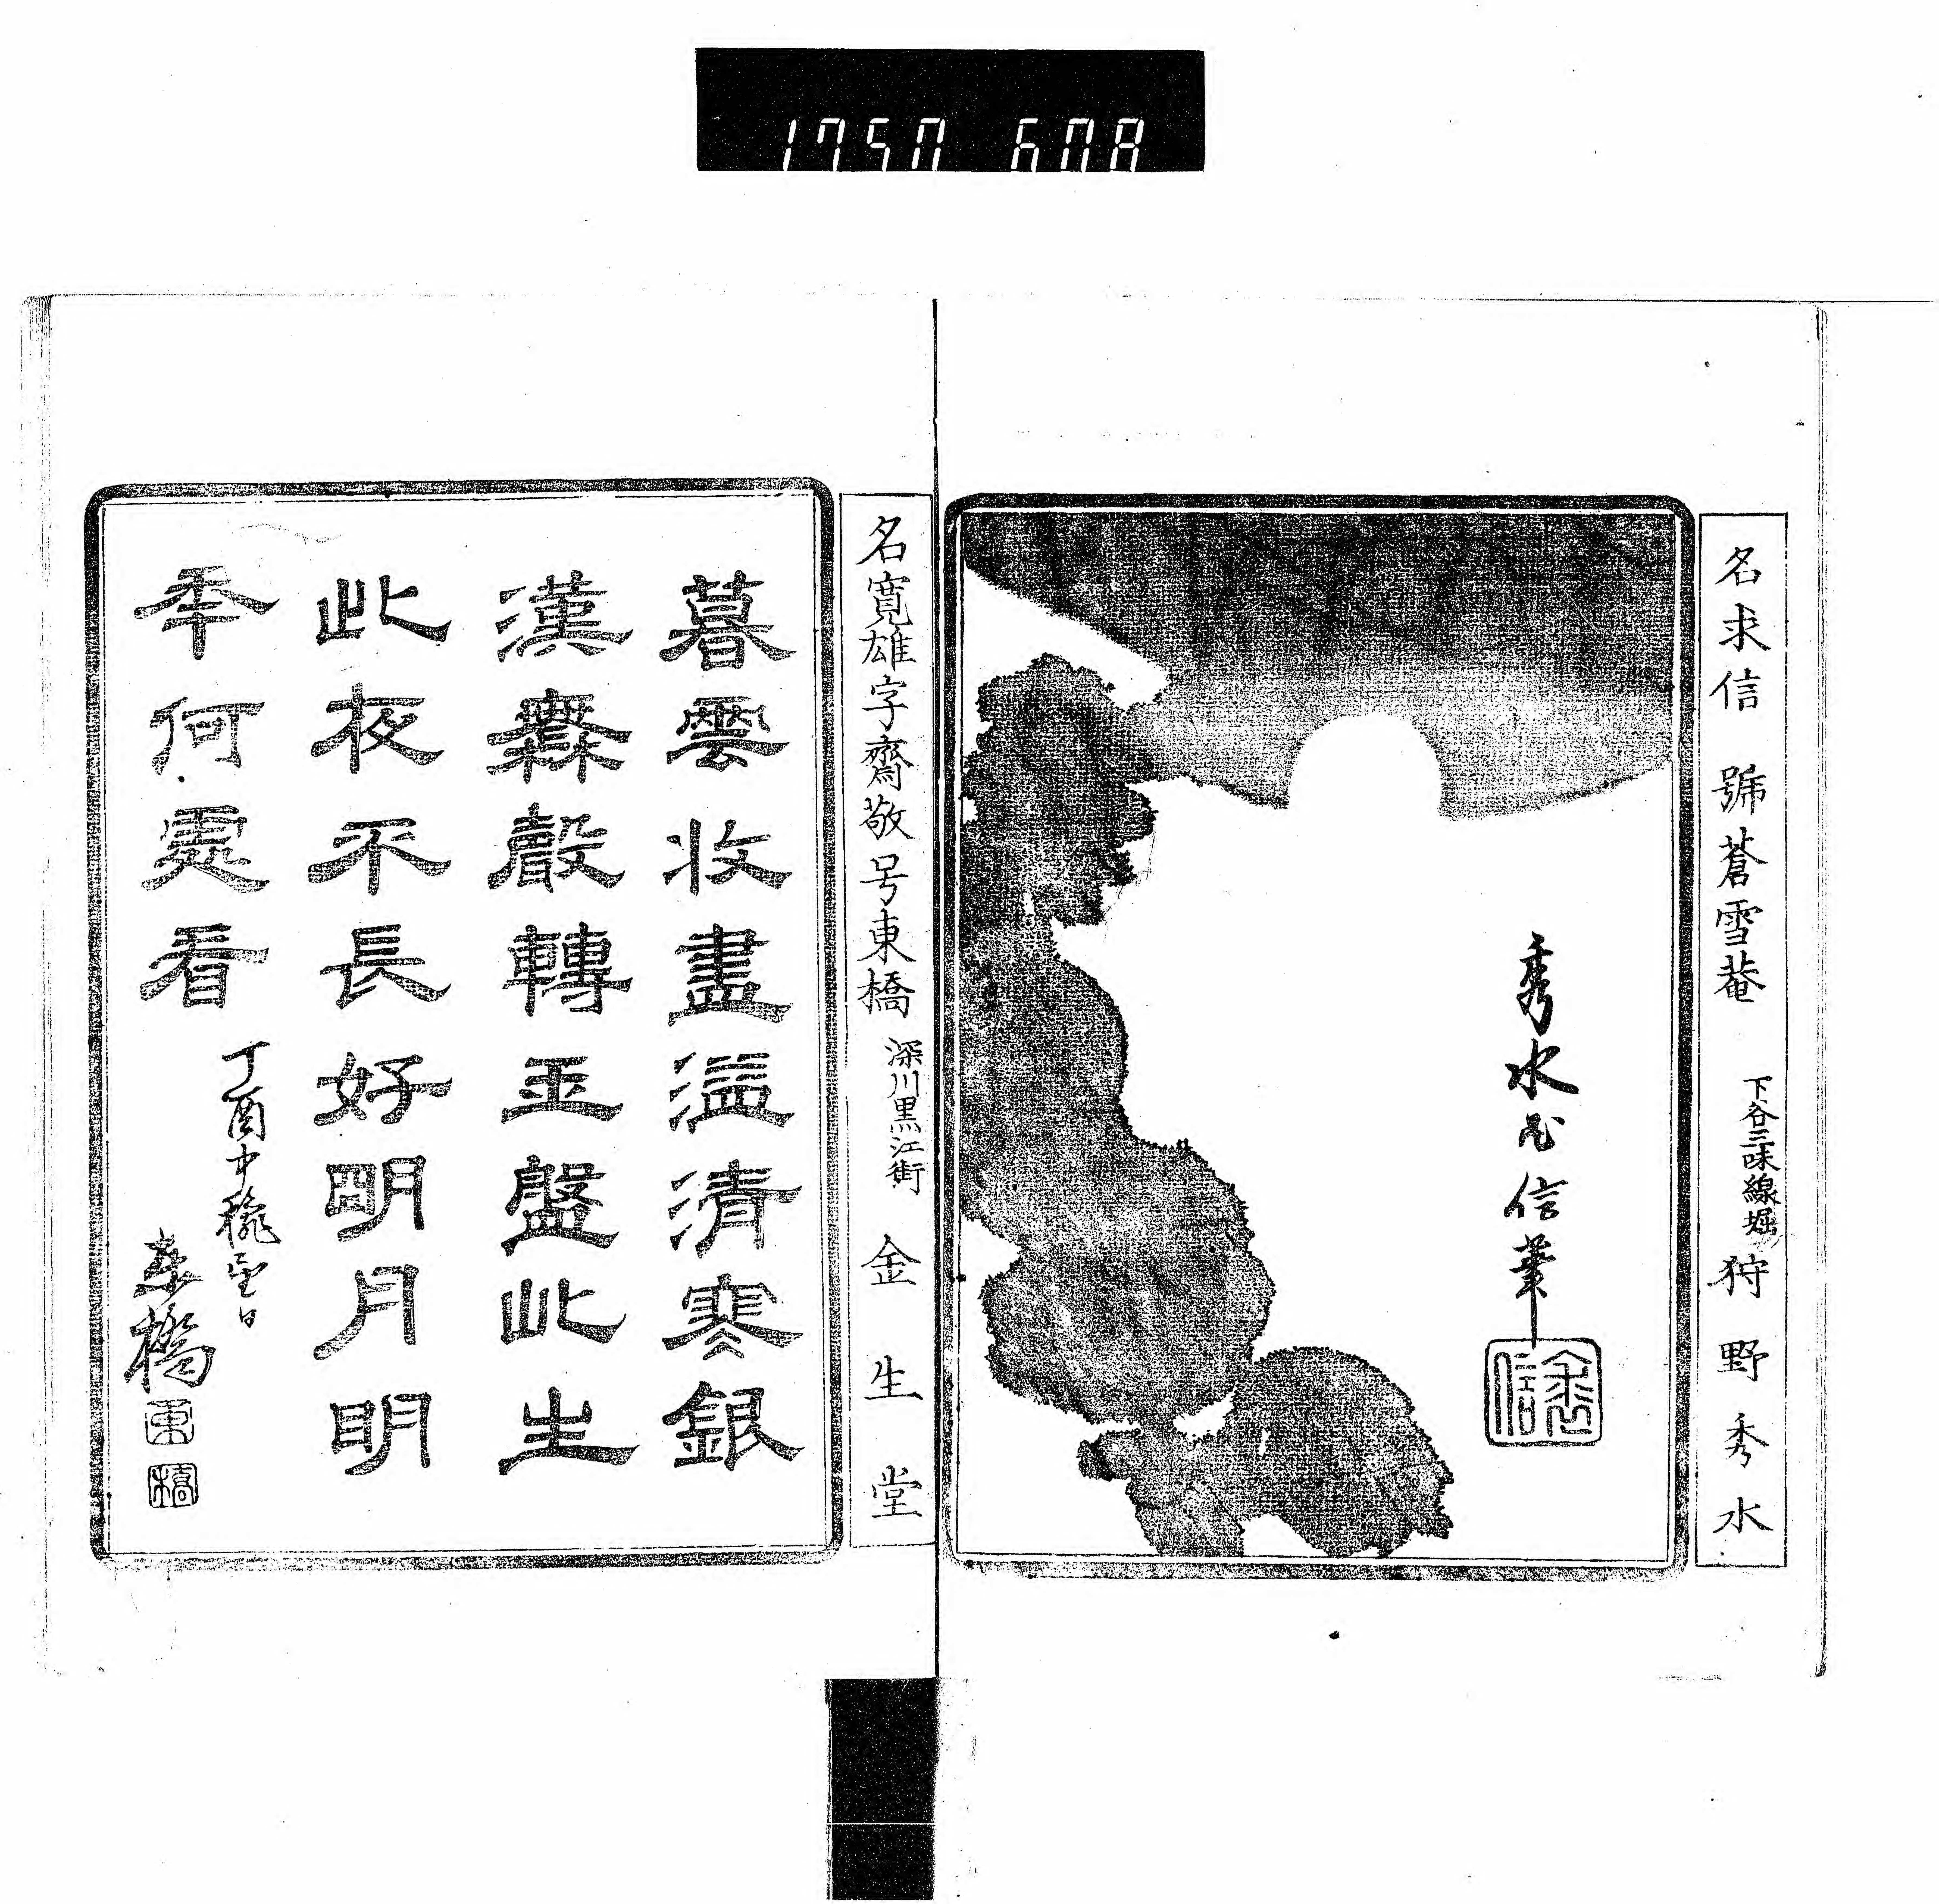 1750 608
名求信 號蒼雪菴 下谷三味線堀 狩野秀水
秀水求信筆
求信
名寛雄字齋敬号東橋 深川黒江街 金生堂
暮雲收盡溢清寒銀
漢無聲轉玉盤此生
此夜不長好明月明
年何處看
丁酉中穐望日
東橋
東
橋